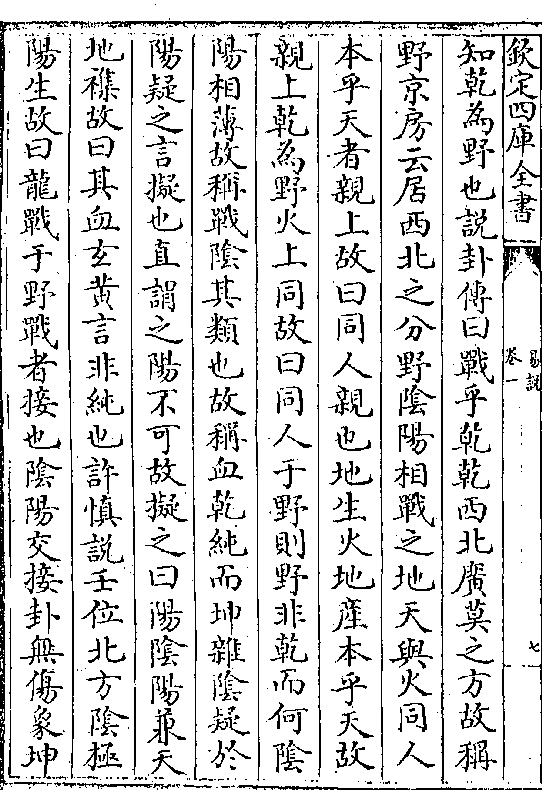 欽定四庫全書
易説
卷一
七
知乾為野也説卦傳曰戰乎乾乾西北廣莫之方故稱
野京房云居西北之分野陰陽相戰之地天與火同人
本乎天者親上故曰同人親也地生火地產本乎天故
親上乾為野火上同故曰同人于野則野非乾而何陰
陽相薄故稱戰陰其類也故稱血乾純而坤雜陰疑於
陽疑之言擬也直謂之陽不可故擬之曰陽陰陽兼天
地襍故曰其血玄黄言非純也許慎説壬位北方陰極
陽生故曰龍戰于野戰者接也陰陽交接卦無傷象坤